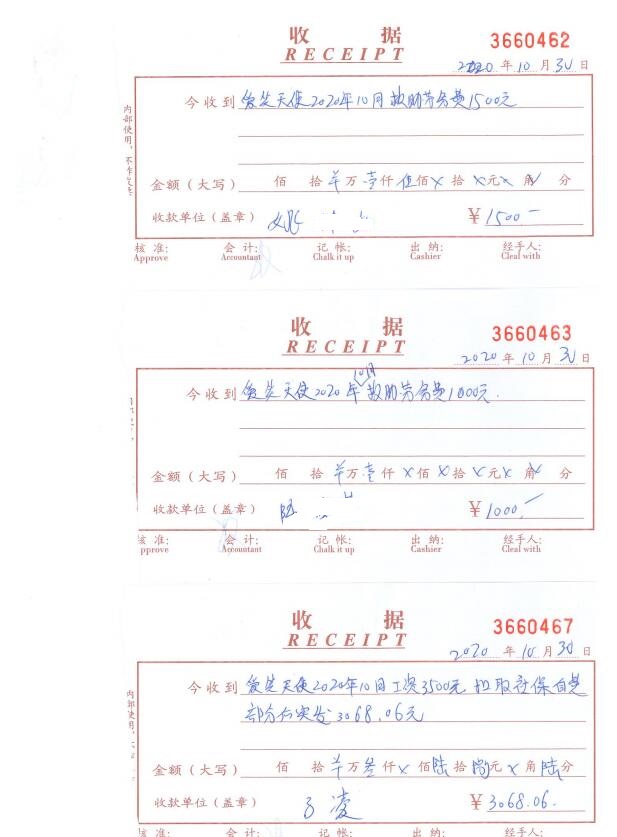 收 据
RECEIPT
3660462
2020 年 10 月 30 日
今收到 爱生天使2020年10月救助劳务费1500元
金额（大写） 佰 拾 万 壹仟 伍佰 × 拾 × 元 × 角 分
收款单位（盖章） ¥ 1500-
核 准: 会 计: 记 帐: 出 纳: 经手人:
Approve Accountant Chalk it up Cashier Cleal with
内部使用，不作发票
收 据
RECEIPT
3660463
2020 年 10 月 30 日
10月
今收到 爱生天使2020年救助劳务费1000元.
金额（大写） 佰 拾 万 壹仟 × 佰 × 拾 × 元 × 角 分
收款单位（盖章） 陆 ¥ 1000.-
核 准: 会 计: 记 帐: 出 纳: 经手人:
pprove Accountant Chalk it up Cashier Cleal with
收 据
RECEIPT
3660467
2020 年 10 月 30 日
今收到 爱生天使2020年10月工资3500元 扣取社保自费
部分后实发3068.06元
金额（大写） 佰 拾 万 叁仟 × 佰 陆拾 捌元 × 角 陆分
收款单位（盖章） 凌 ¥ 3068.06.
内部使用，
核 准: 会 计: 记 帐: 出 纳: 经手人: